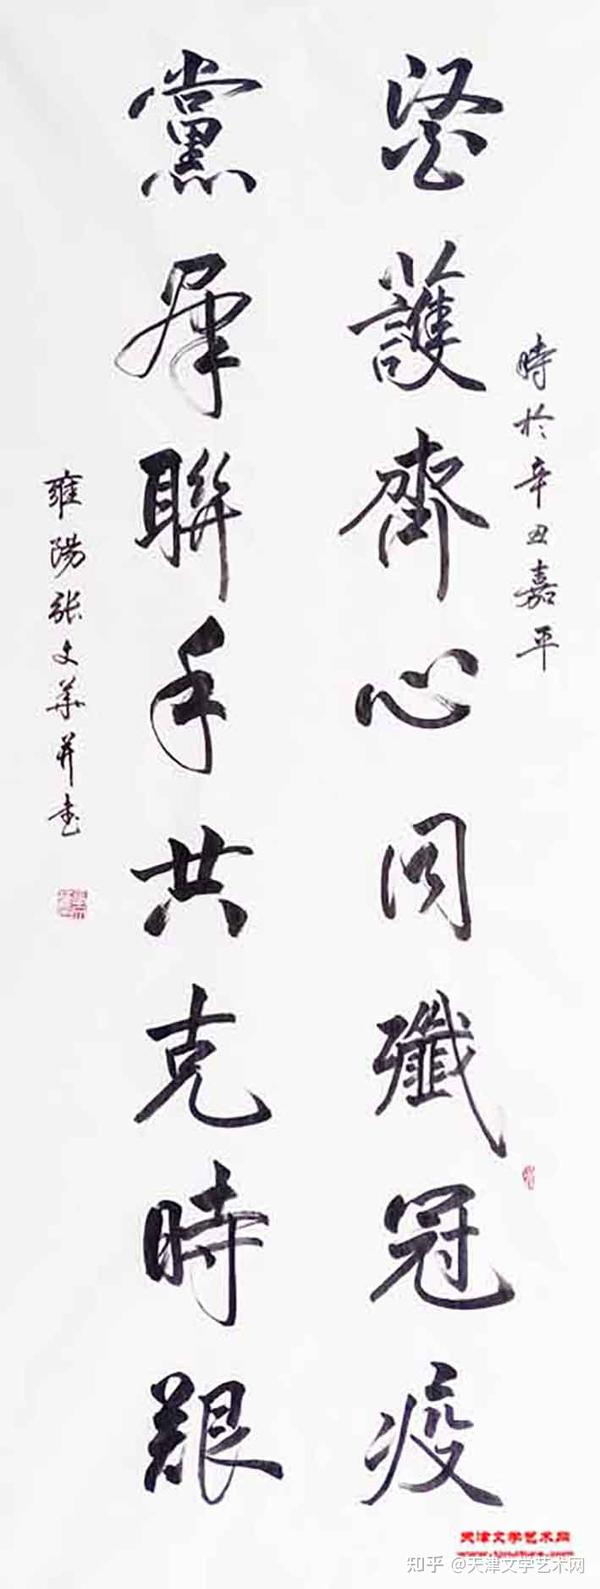 時於辛丑嘉平
醫護齊心同殲冠疫
黨群聯手共克時艱
雍陽张文華并書
天津文学艺术网
知乎 @天津文学艺术网